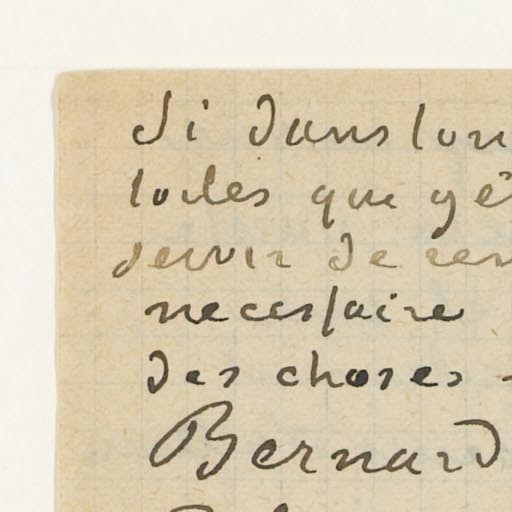 Si dans lon
toiles que je
servir de ren
necessaire
des choses -
Bernard